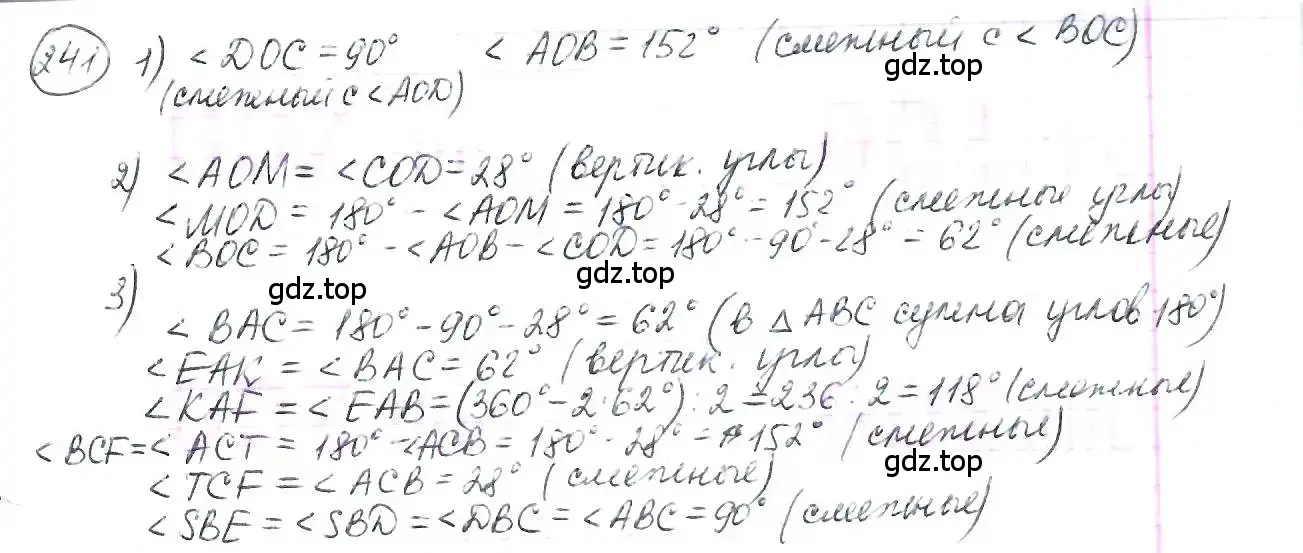 241 1) < DOC = 90° < AOB = 152° (смежный с < BOC)
gdz.top
(смежный с < AOD)
2) < AOM = < COD = 28° (вертик. углы)
< MOD = 180° - < AOM = 180° - 28° = 152° (смежные углы)
< BOC = 180° - < AOB - < COD = 180° - 90° - 28° = 62° (смежные)
gdz.top gdz.top
3)
< BAC = 180° - 90° - 28° = 62° (в △ ABC сумма углов 180°)
< EAK = < BAC = 62° (вертик. углы)
< KAF = < EAB = (360° - 2·62°) : 2 = 236 : 2 = 118° (смежные)
< BCF = < ACT = 180° - < ACB = 180° - 28° = 152° (смежные)
gdz.top
< TCF = < ACB = 28° (смежные)
< SBE = < SBD = < DBC = < ABC = 90° (смежные)
gdz.top